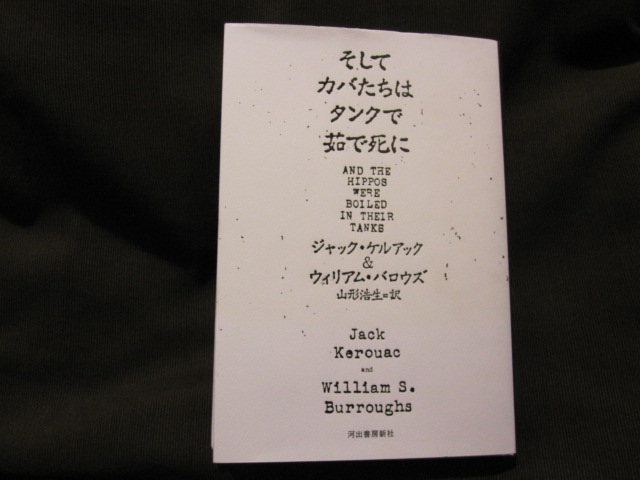 そして
カバたちは
タンクで
茹で死に
AND THE
HIPPOS
WERE
BOILED
IN THEIR
TANKS
ジャック・ケルアック
&
ウィリアム・バロウズ
山形浩生=訳
Jack
Kerouac
and
William S.
Burroughs
河出書房新社